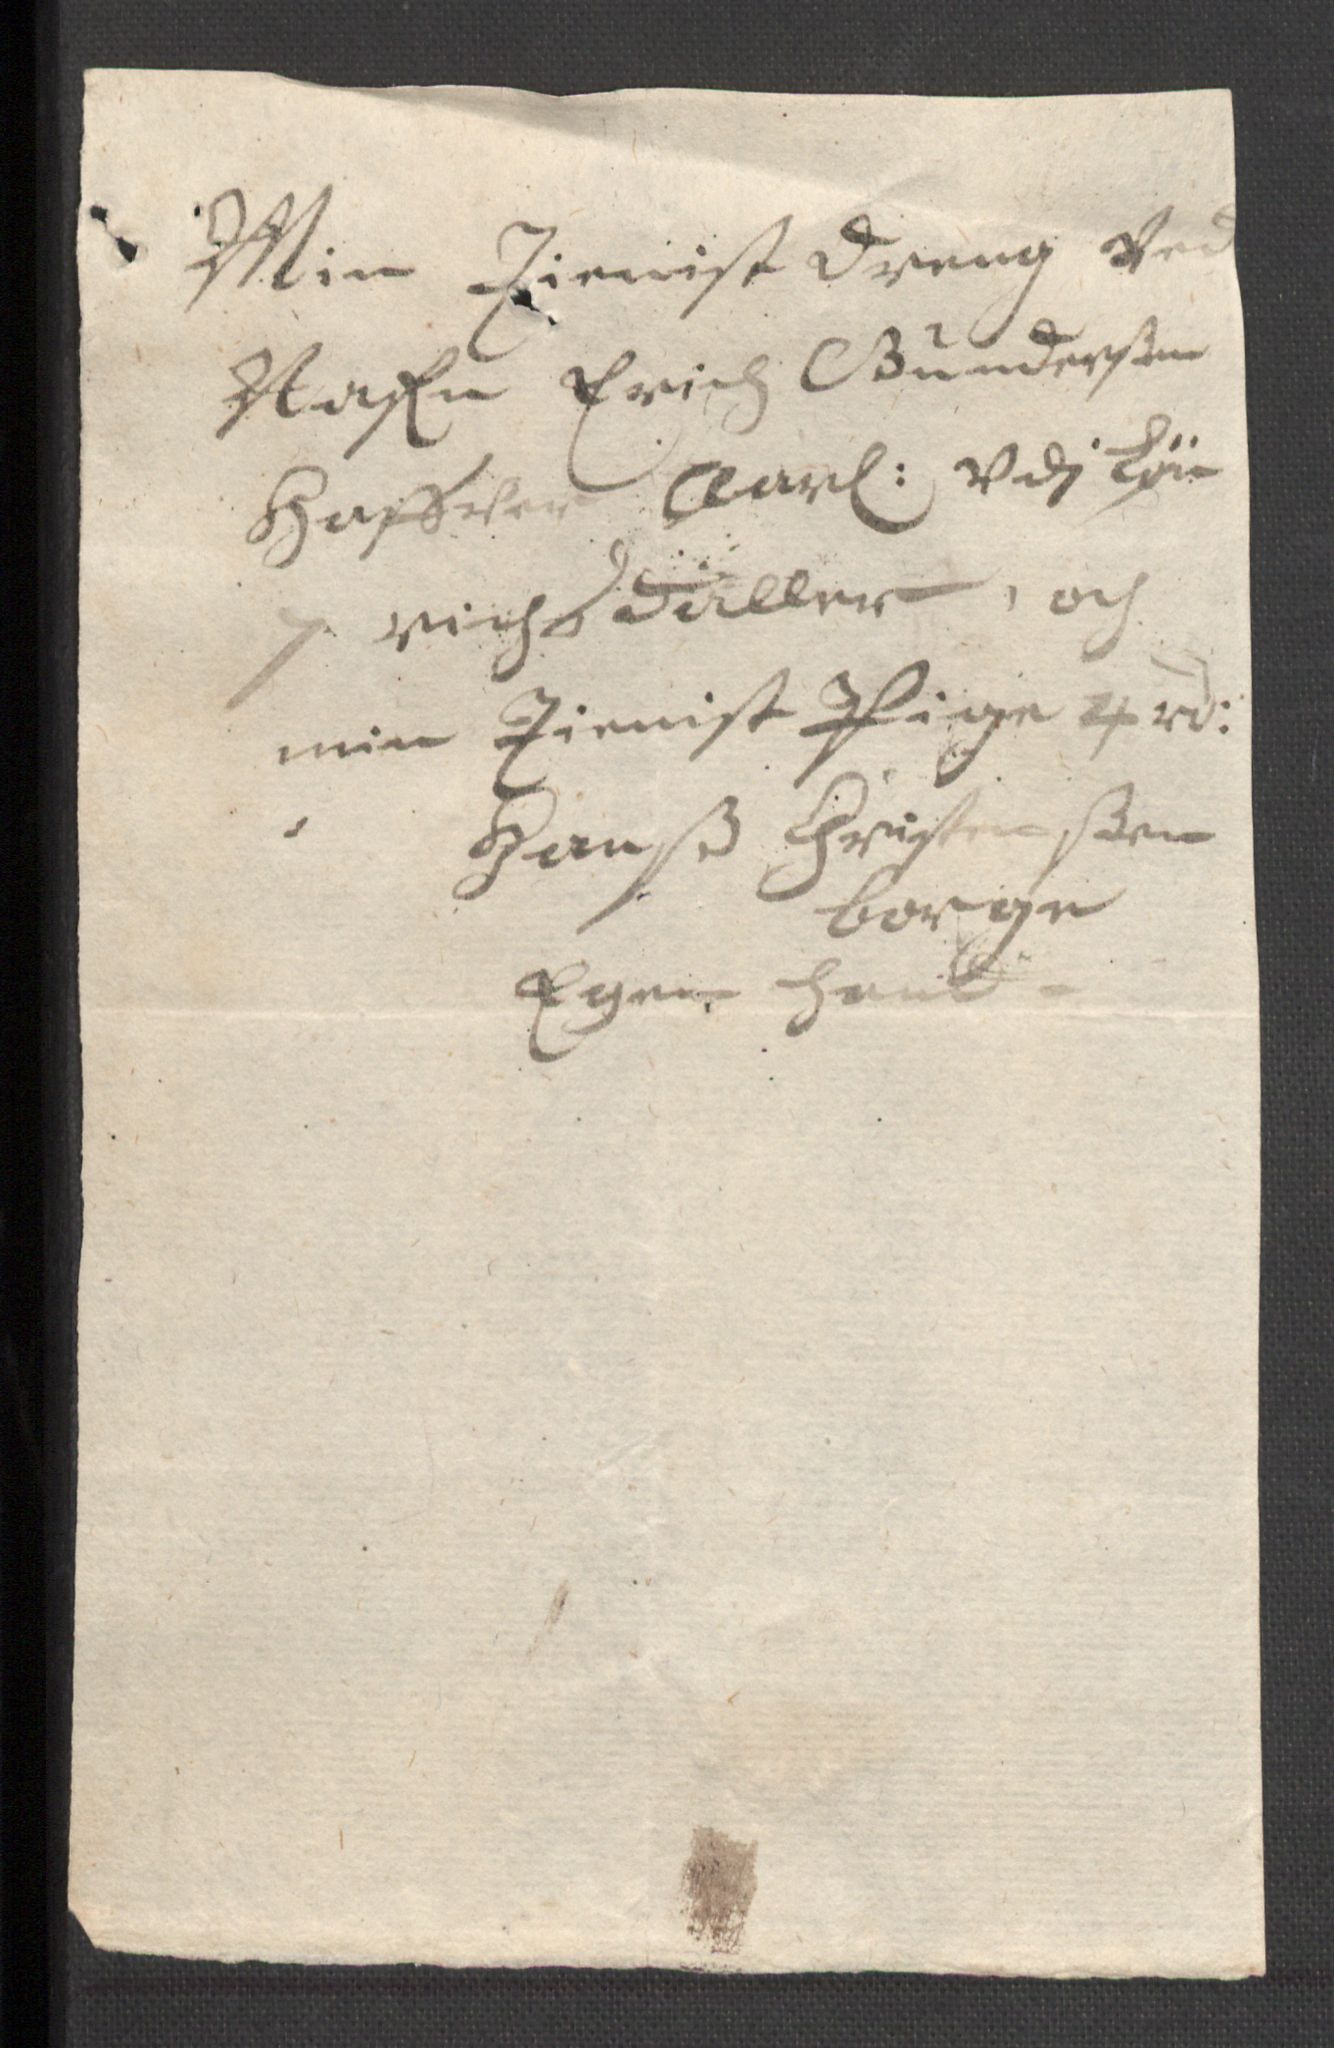 Min Tienist dreng ved
Nafn Erich Gundersen
Haffver Aarl: Vdj Løn
7 richsdaller, och
min Tienist Pige 4 rd:
Hanß Christenßen
borge
Egen hand